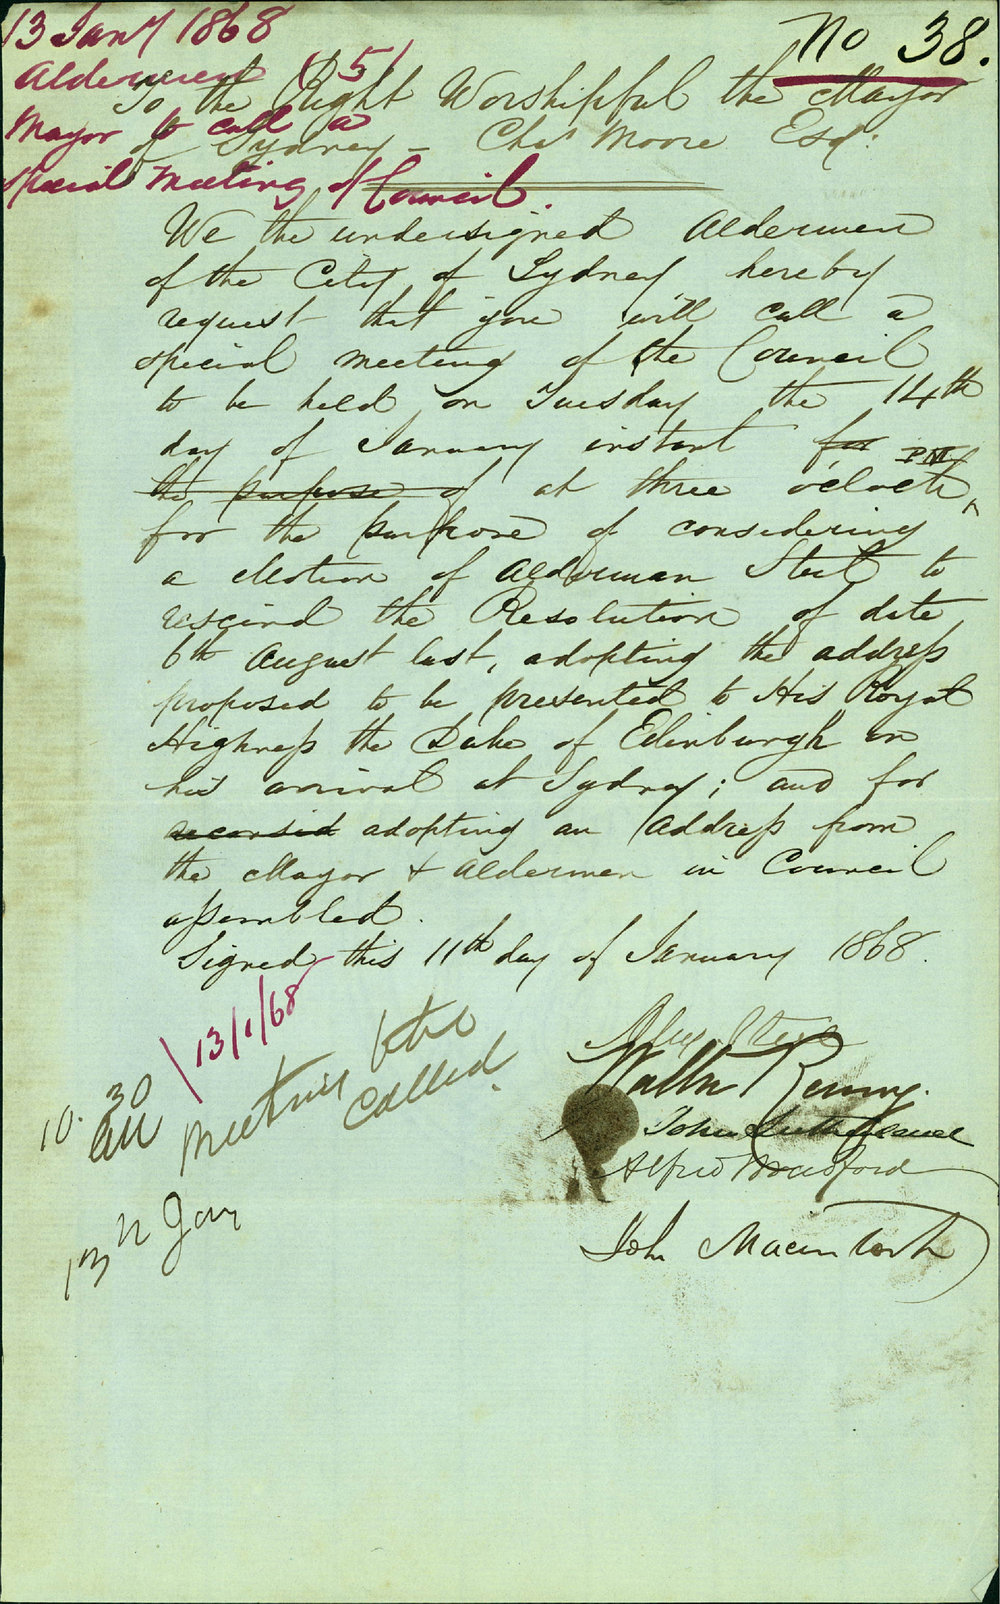 13 Jany 1868
Aldermen (5)
Mayor to call a
special meeting of Council.
No 38.
To the Right Worshipful the Mayor
of Sydney - Chas Moore Esq:
We the undersigned Aldermen
of the City of Sydney hereby
request that you will call a
special meeting of the Council
to be held on Tuesday the 14th
day of January instant for
the purpose of at three oClock PM
for the purpose of considering
a Motion of Alderman Steel to
rescind the Resolution of date
6th August last, adopting the address
proposed to be presented to His Royal
Highness the Duke of Edinburgh on
his arrival at Sydney; and for
reconsid adopting an Address from
the Mayor & Aldermen in Council
assembled.
Signed this 11th day of January 1868.
13/1/68
Meeting to be
called.
10.30
AM
13th Jany
Walter Renny.
John Sutherland
Alfred Bradford
John Macintosh